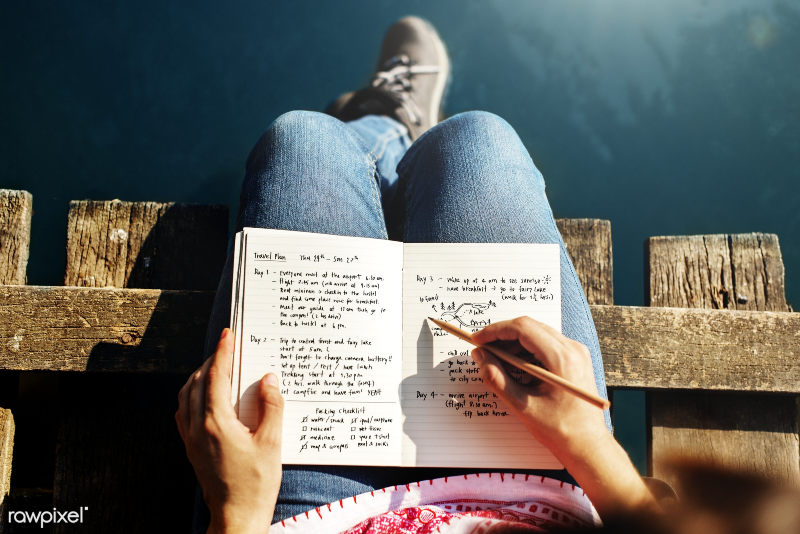 Travel Plan Thu 24th - Sun 27th
Day 1 - Everyone meet at the airport 6.30 am.
- Flight 7.45 am (will arrive at 9.15 am)
- Rent minivan & checkin to the hostel
and find some place nice for breakfast.
- Meet our guide at 11 am then go to
the campsite (2 hrs drive)
- Back to hostel at 6 pm.
Day 2 - Trip to central forest and fairy lake
start at 5 am!
- Don't forget to charge camera battery!!
- Set up tent / rest / have lunch
- Trekking start at 1.30 pm
(2 hrs. walk through the forest)
- Set campfire and have fun! YEAH
Packing Checklist
water / snack ipod / earphone
raincoat wet tissue
medicine spare t-shirt
map & compass pant & socks
Day 3 - wake up at 4 am to see sunrise
- have breakfast → go to fairy lake
(walk for 1 1/2 hrs)
Lake
- call out
- go back
- pack stuff
to city
Day 4 - arrive airport
(flight 8.30 am)
- trip back
rawpixel